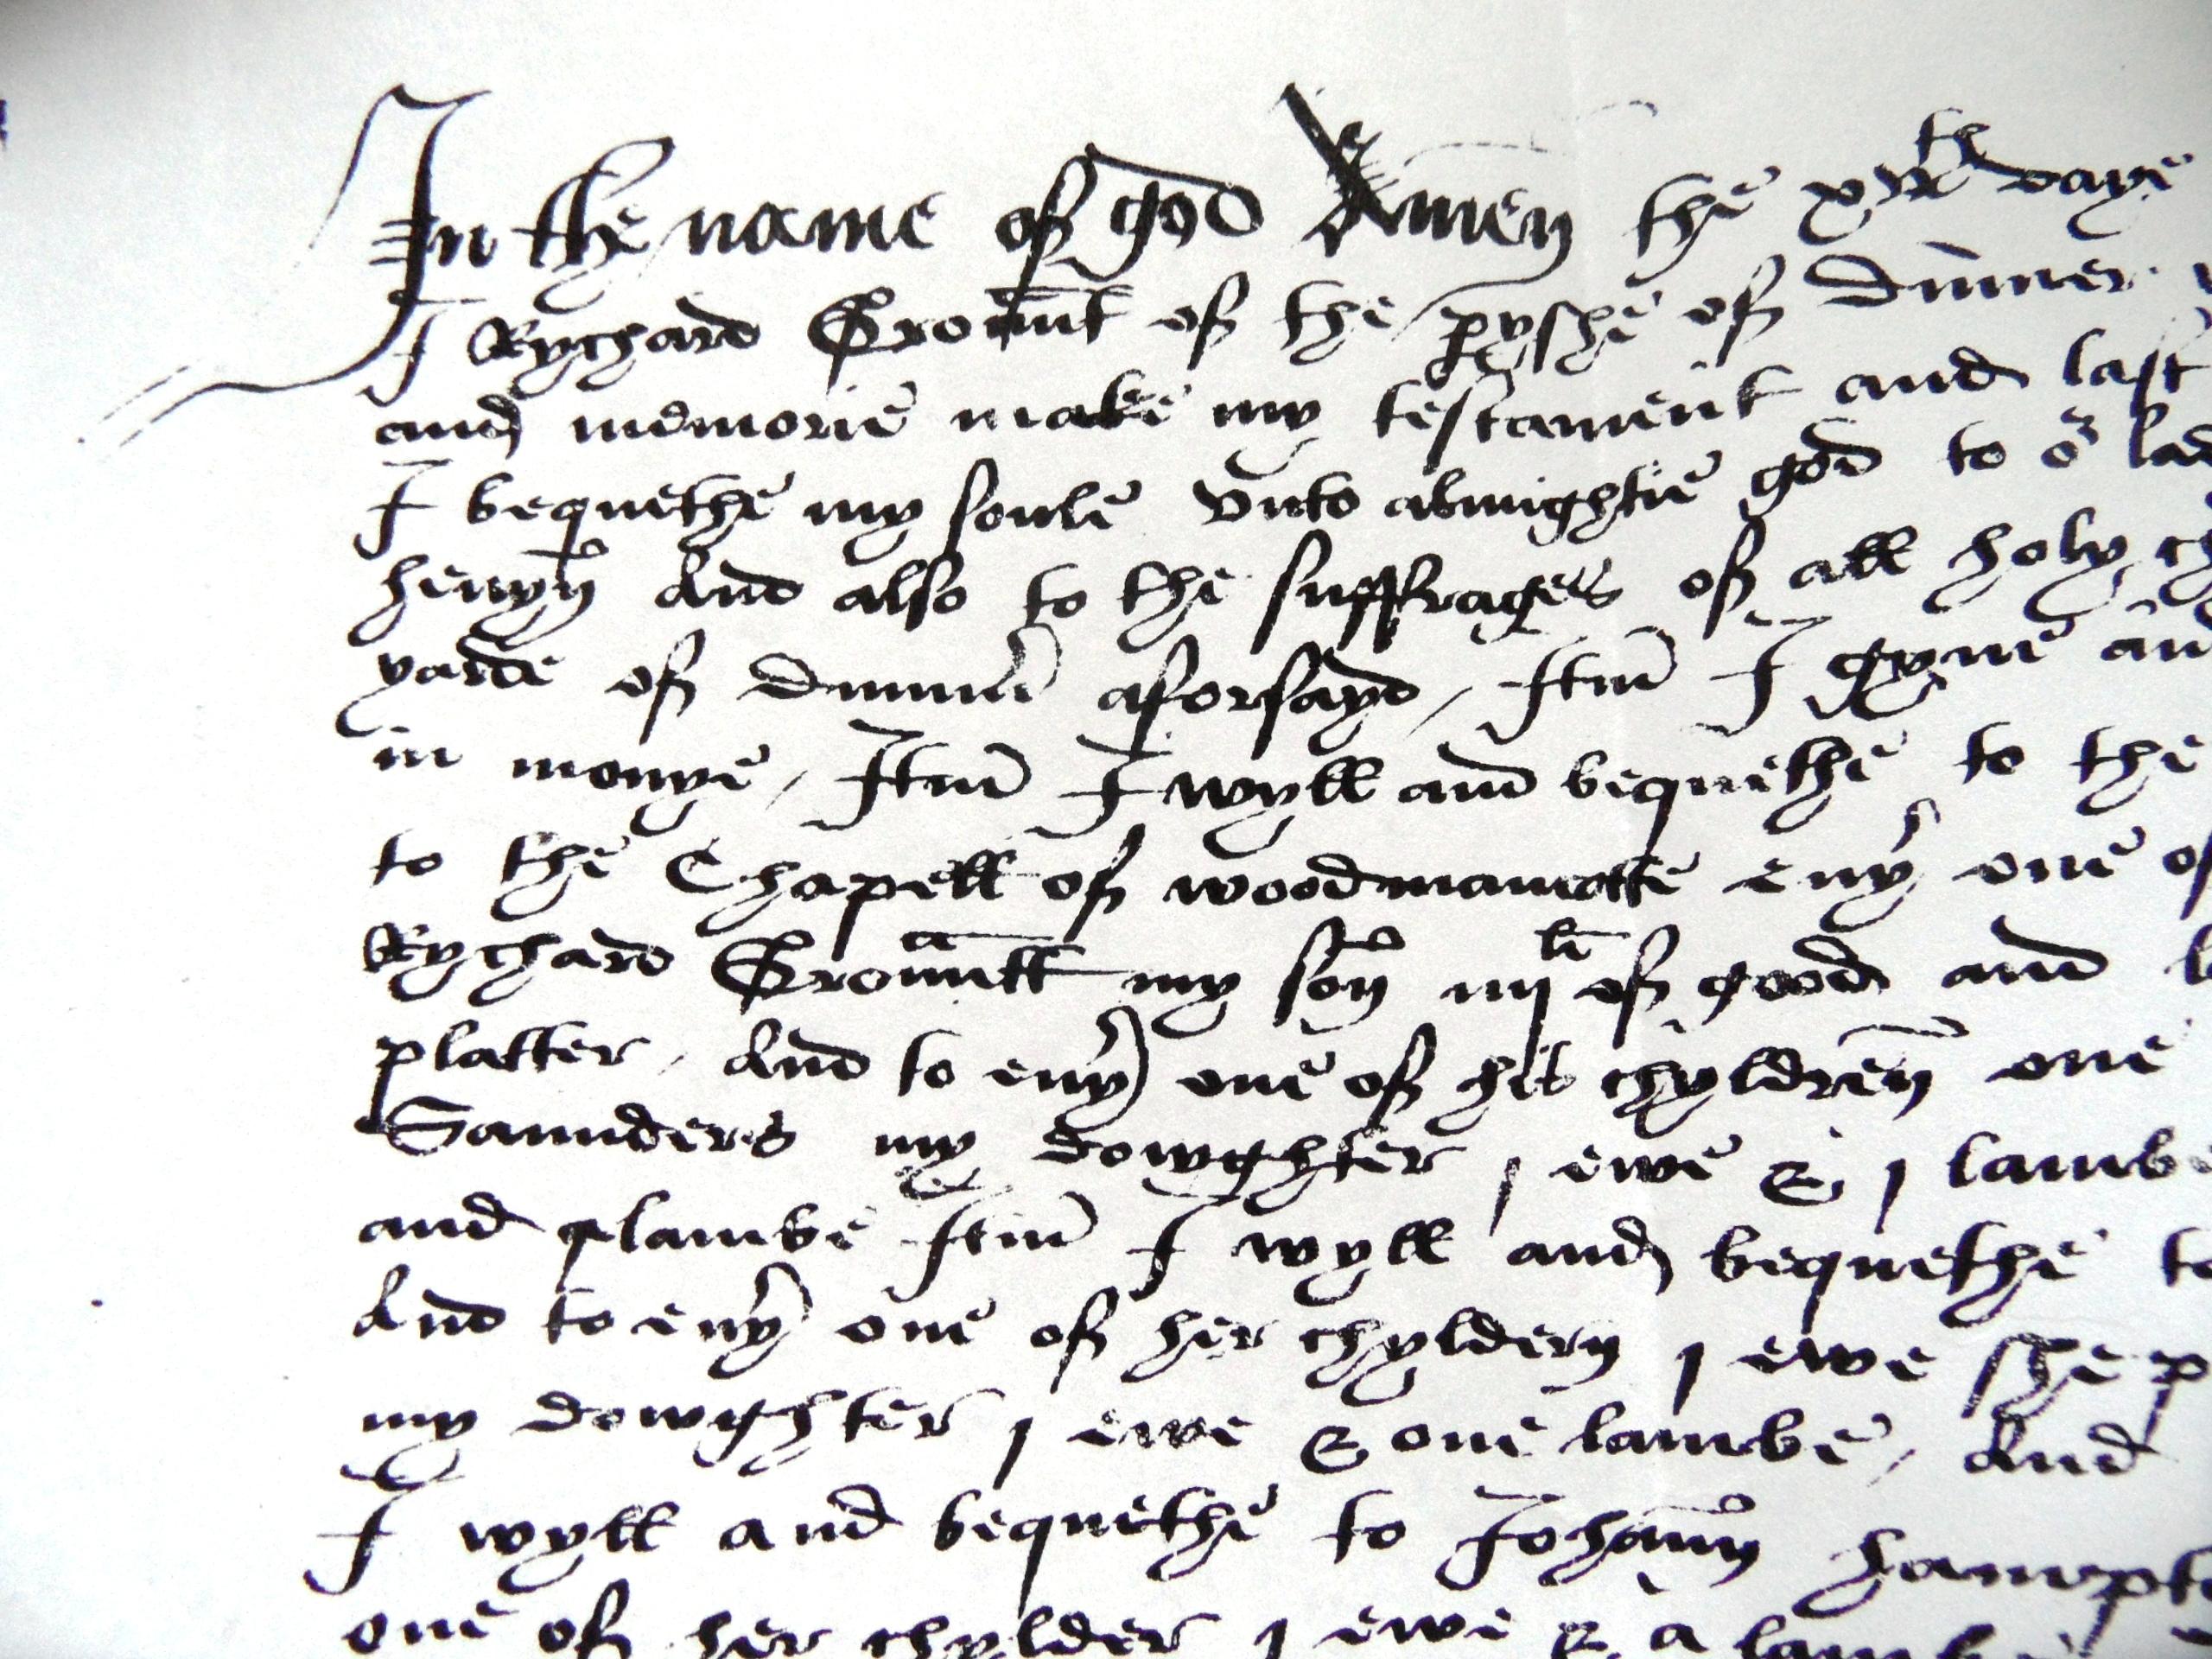 In the name of god Amen the xxth daye
I Rychard Gromnt of the pyshe of Dimmer
and memorie make my testament and last
I bequethe my soule vnto almightie god to or lad
hevyn And also to the suffrages of all holy ch
yarde of aforsayd / Itm I gyue and
in monye / Itm I wyll and bequethe to the
to the Chapell of woodmancotte eny one of
Rychard my son iiijli of good and l
platter / And to eny one of his chyldren one
Saunders my dowghter j ewe & j lambe
and a lambe Itm I wyll and bequethe to
And to eny one of her chyldern j ewe shep
my dowghter j ewe & one lambe / And
I wyll and bequethe to Johann hampt
one of her chylder j ewe & a lambe